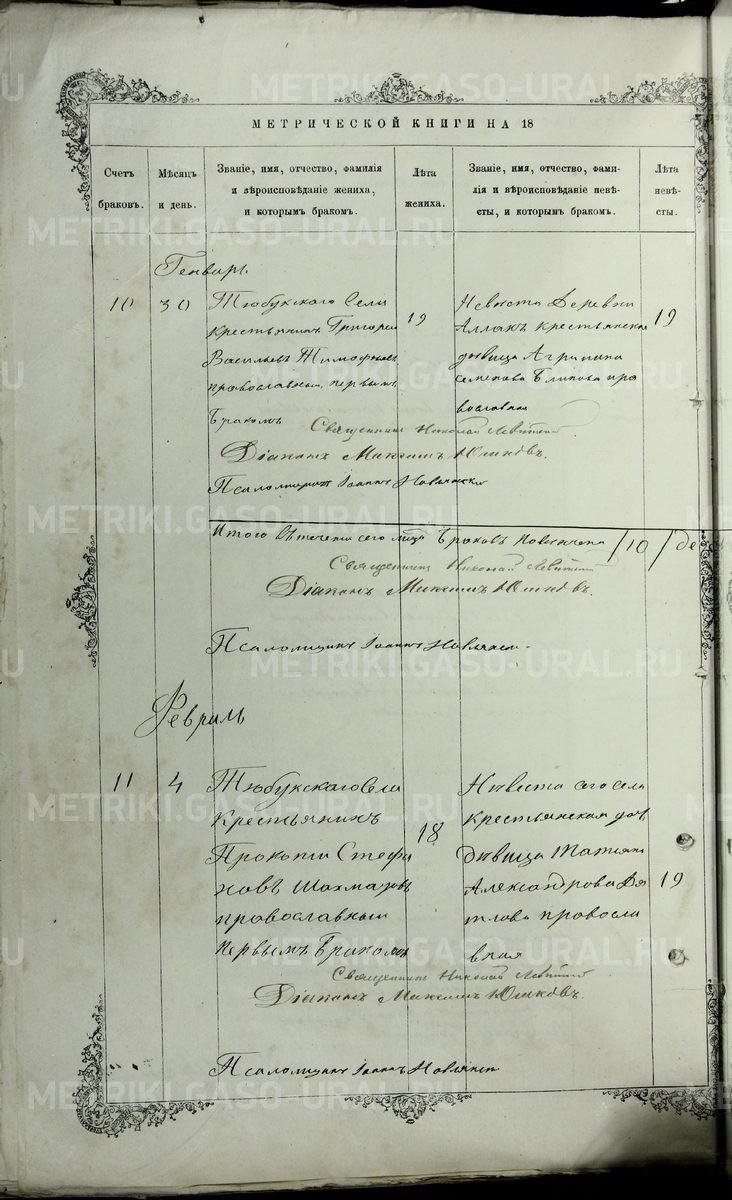 МЕТРИЧЕСКОЙ КНИГИ НА 18
Счетъ
браковъ.
Мѣсяцъ
и день.
Званіе, имя, отчество, фамилія
и вѣроисповѣданіе жениха,
и которымъ бракомъ.
Лѣта
жениха.
Званіе, имя, отчество, фами-
лія и вѣроисповѣданіе невѣ-
сты, и которымъ бракомъ.
Лѣта
невѣ-
сты.
Генварь.
10
30
Тюбукскаго Села
крестьянинъ Григорей
Васильевъ Тимофѣевъ
православный, первымъ
бракомъ
19
Невѣста Деревни
Аллакъ крестьянская
дѣвица Агрипина
Семенова Блинова пра
вославная
19
Священникъ Николай Левитскій
Діаконъ Максимъ Юшковъ.
Псаломщикъ Іоаннъ
Итого въ теченіи сего м-ца браковъ повенчено /10/ де
Священникъ Николай Левитскій
Діаконъ Максимъ Юшковъ.
Псаломщикъ Іоаннъ
Февраль
11
4
Тюбукскаго Села
крестьянинъ
Прокопій Стефа
новъ Шахматовъ
православный
первымъ бракомъ
18
Невѣста сего села
крестьянская доч
дѣвица Татьяна
Александрова Вя
ткова провосла
вная
19
Священникъ Николай Левитскій
Діаконъ Максимъ Юшковъ.
Псаломщикъ Іоаннъ
METRIKI.GASO-URAL.RU